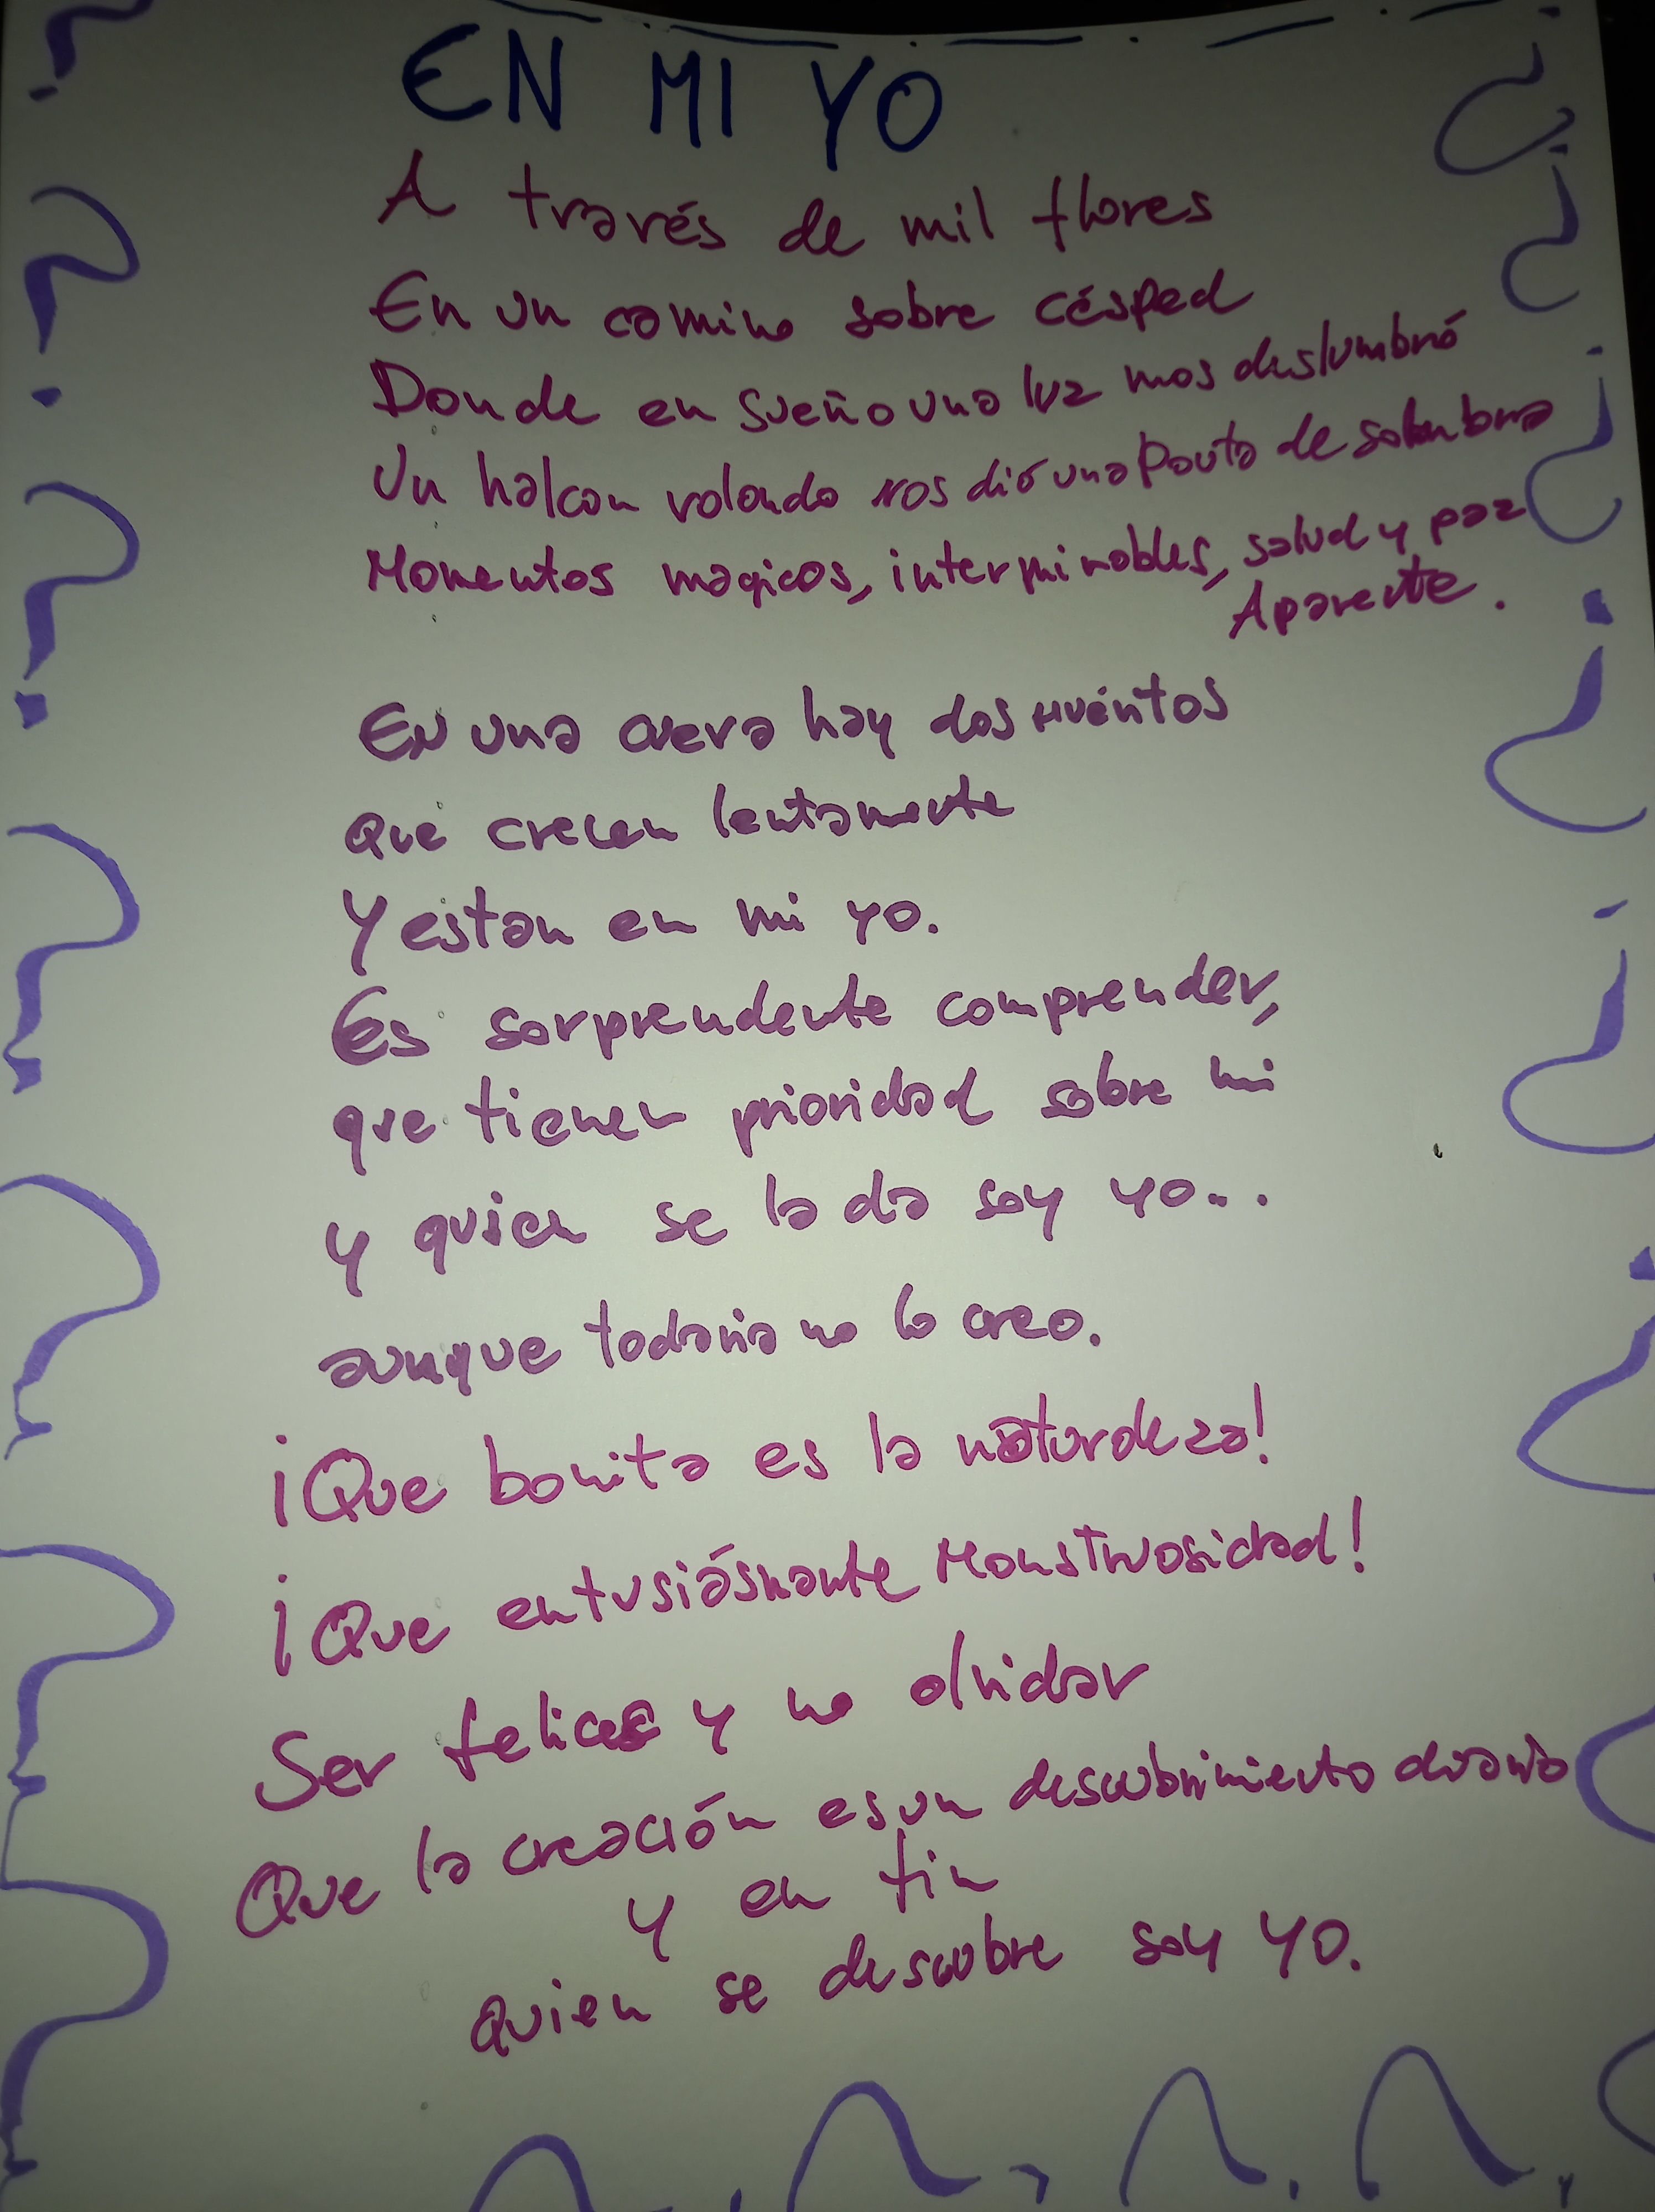 EN MI YO
A través de mil flores
En un camino sobre césped
Donde en sueño una luz mos deslumbró
Un halcon volando nos dió una pauta de
Momentos magicos, interminables, salud y paz
Aparente.
En una hay dos
que crecen lentamente
Y estan en mi yo.
Es sorprendente comprender,
que tienen prioridad sobre mi
y quien se la da soy yo...
aunque todavia no lo creo.
¡Que bonita es la naturaleza!
¡Que entusiásmante Monstruosidad!
Ser felices y no olvidar
Que la creación es un descubrimiento diario
y en fin
quien se descubre soy yo.